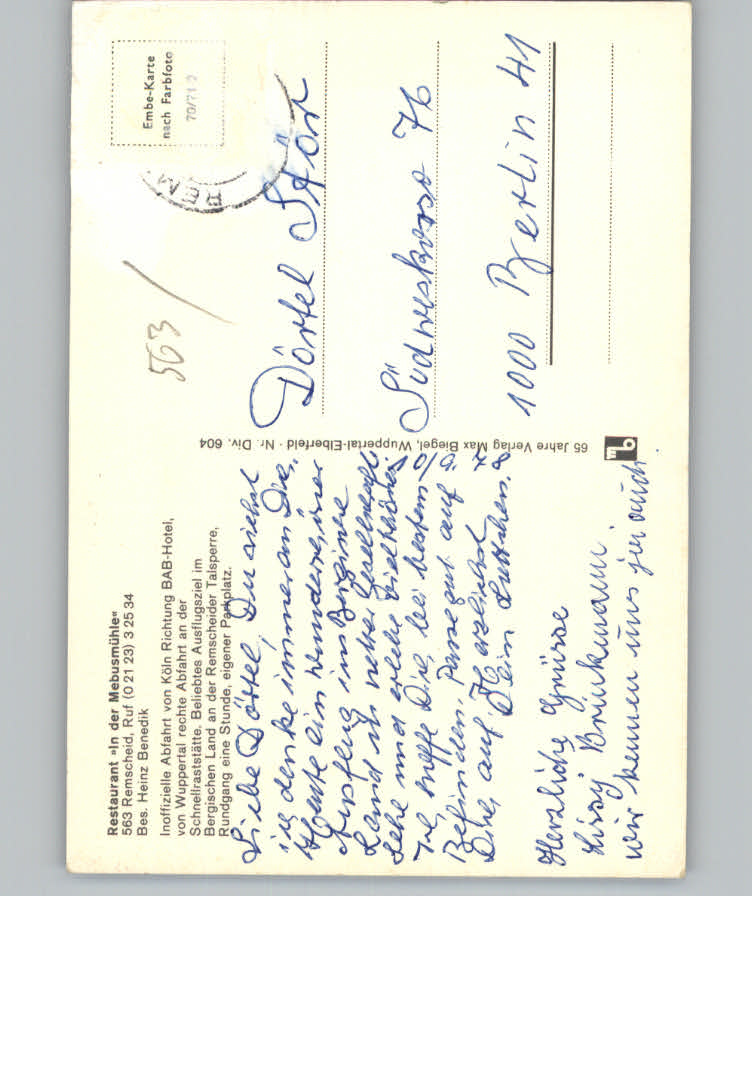 Restaurant »In der Mebusmühle«
563 Remscheid, Ruf (0 21 23) 3 25 34
Bes. Heinz Benedik
Inoffizielle Abfahrt von Köln Richtung BAB-Hotel,
von Wuppertal rechte Abfahrt an der
Schnellraststätte. Beliebtes Ausflugsziel im
Bergischen Land an der Remscheider Talsperre,
Rundgang eine Stunde, eigener Parkplatz.
Liebe Dörtel, Du siehst
ich denke immer an Dich,
Heute ein wunderschöner
Ausflug ins Bergische
Land in netter Gesellschaft
Sehe und erlebe viel Schönes
Ich hoffe Dich bei bestem
Befinden. Passe gut auf
Dich auf. Herzlichst
Dein
Herzliche Grüsse
Lissy Brinkmann
wir kennen uns ja auch.
65 Jahre Verlag Max Biegel, Wuppertal-Elberfeld · Nr. Div. 604
mb
Embe-Karte
nach Farbfoto
70/71
REM
563/
Dörtel Stör
Südwestkorso 76
1000 Berlin 41